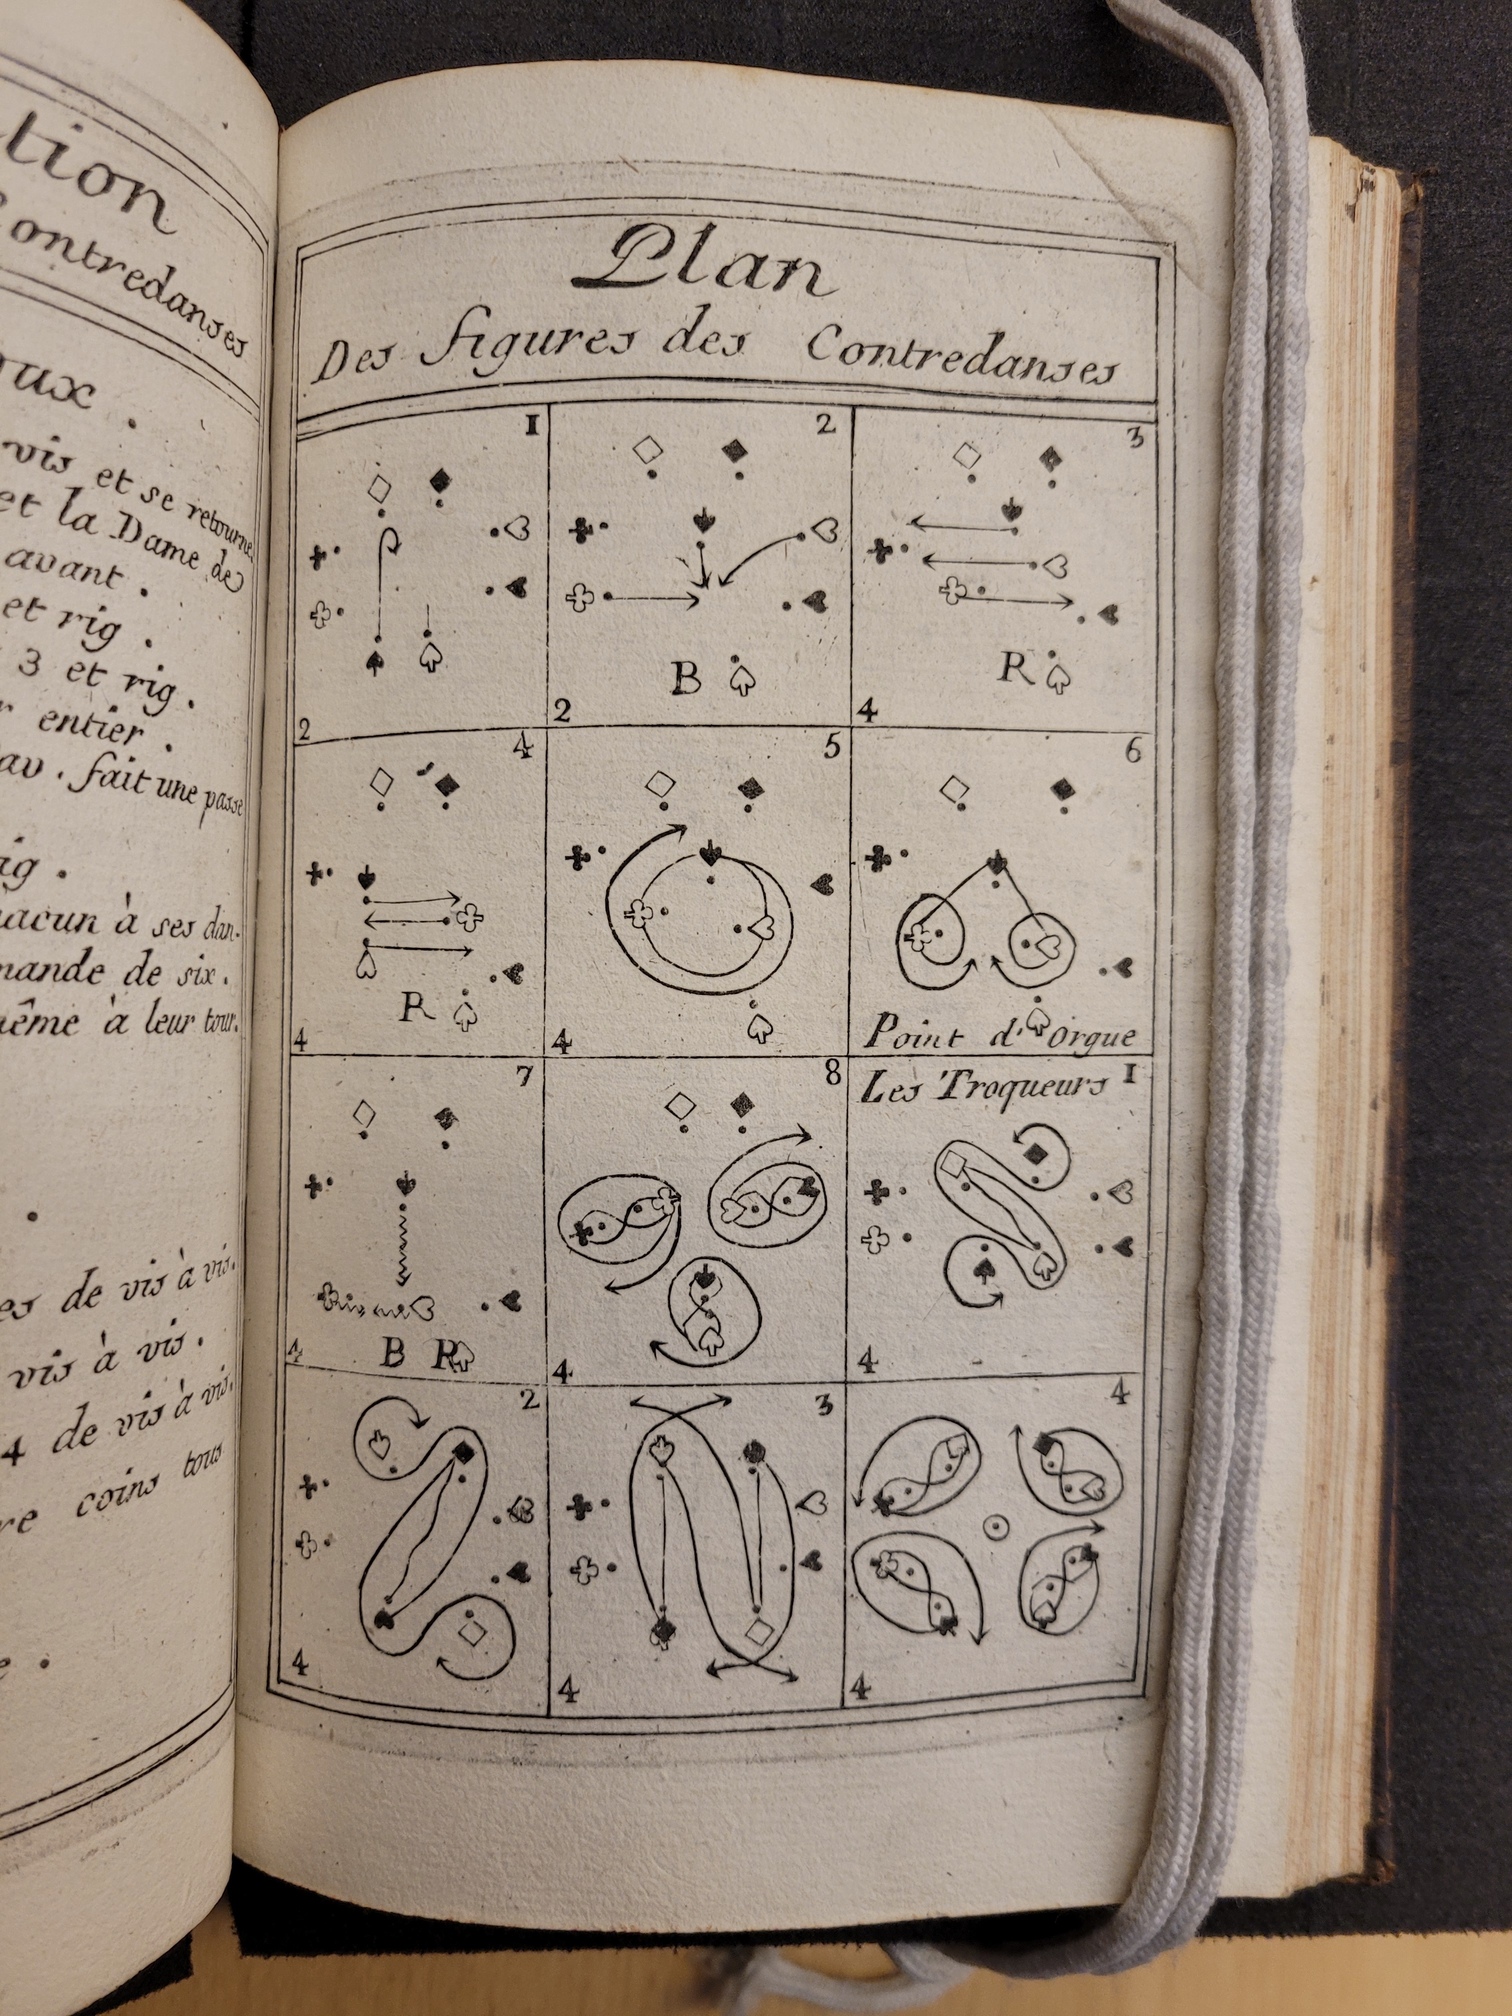 tion
ontredanses
aux .
vis et se retourne
et la Dame de
avant .
et rig .
3 et rig .
entier .
av . fait une passe
ig .
hacun à ses dan-
mande de six .
même à leur tour.
es de vis à vis.
vis à vis .
4 de vis à vis.
re coins tous
e .
Plan
Des figures des Contredanses
1
2
2
B
2
3
R
4
4
R
4
5
4
6
Point d'Orgue
7
B R
4
8
4
Les Troqueurs 1
4
2
4
3
4
4
4